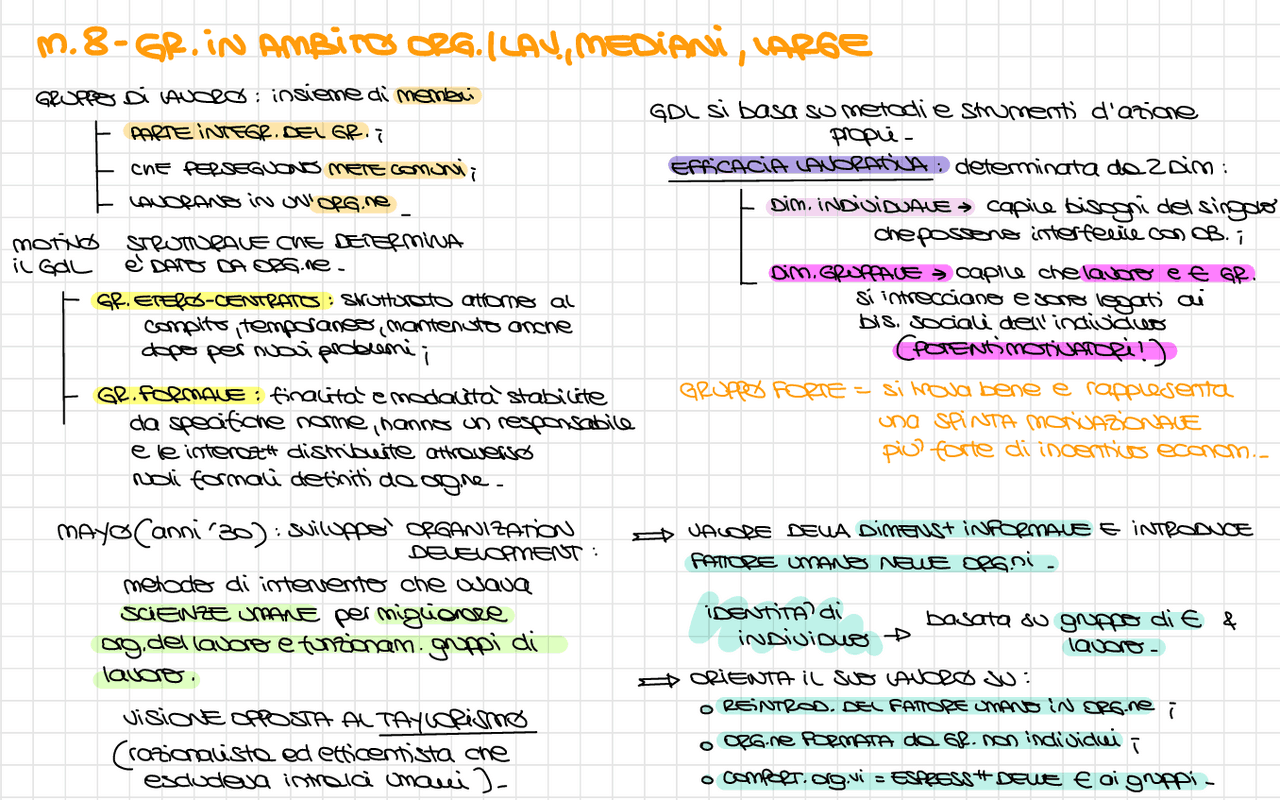 M.8 - GR. IN AMBITO ORG./LAV., MEDIANI, LARGE
GRUPPO DI LAVORO: insieme di membri
PARTE INTEGR. DEL GR.;
CHE PERSEGUONO METE COMUNI;
LAVORANO IN UN'ORG.ne _
MOTIVO STRUTTURALE CHE DETERMINA
il GdL È DATO DA ORG.ne -
GR. ETERO-CENTRATO: strutturato attorno al
compito, temporaneo, mantenuto anche
dopo per nuovi problemi;
GR. FORMALE: finalità e modalità stabilite
da specifiche norme, hanno un responsabile
e le interaz# distribuite attraverso
ruoli formali definiti da org.ne -
MAYO (anni '30): sviluppò ORGANIZATION
DEVELOPMENT:
metodo di intervento che usava
SCIENZE UMANE per migliorare
org. del lavoro e funzionam. gruppi di
lavoro.
VISIONE OPPOSTA AL TAYLORISMO
(razionalista ed efficentista che
escludeva intralci umani)-
GDL si basa su metodi e strumenti d'azione
propri -
EFFICACIA LAVORATIVA: determinata da 2 Dim:
DIM. INDIVIDUALE → capire bisogni del singolo
che possono interferire con OB.;
DIM. GRUPPALE → capire che lavoro e € GR.
si intrecciano e sono legati ai
bis. sociali dell'individuo
(POTENTI MOTIVATORI!)
GRUPPO FORTE = si trova bene e rappresenta
una SPINTA MOTIVAZIONALE
più forte di incentivo econom. -
⇒ VALORE DELLA DIMENS+ INFORMALE E INTRODUCE
FATTORE UMANO NELLE ORG.ni -
IDENTITÀ di
INDIVIDUO → basata su gruppo di € &
lavoro -
⇒ ORIENTA IL SUO LAVORO SU:
o REINTROD. DEL FATTORE UMANO IN ORG.ne;
o ORG.ne FORMATA da GR. non individui;
o COMPORT. org.vi = ESPRESS# DELLE € ai gruppi -